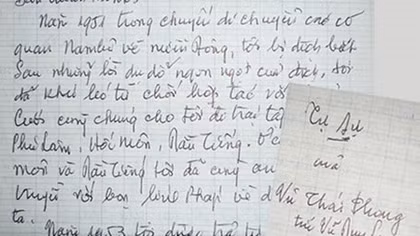 Năm 1951 trong chuyến di chuyển của cơ
quan Nam bộ về miền Đông, tôi bị địch bắt
Sau những lời dụ dỗ ngon ngọt của địch, tôi
đã khéo léo từ chối hợp tác với
Cuối cùng chúng cho tôi đi trại tập
Phú Lâm, Hóc môn, Dầu Tiếng. Ở
môn và Dầu Tiếng tôi đã cùng
truyện với bọn lính Pháp về
ta.
Năm 1953 tôi được trả tự
Tự sự
của
Vũ Thái Phong
tức Vũ